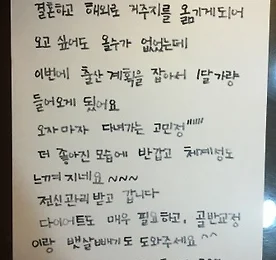 결혼하고 해외로 거주지를 옮기게되어
오고 싶어도 올수가 없었는데
이번에 출산 계획을 잡아서 1달가량
들어오게 됬어요
오자마자 다녀가는 고민정""
더 좋아진 모습에 반갑고 체계성도
느껴지네요~~~
전신관리받고 갑니다
다이어트도 매우 필요하고, 골반교정
이랑 뱃살빼기도 도와주세요^^